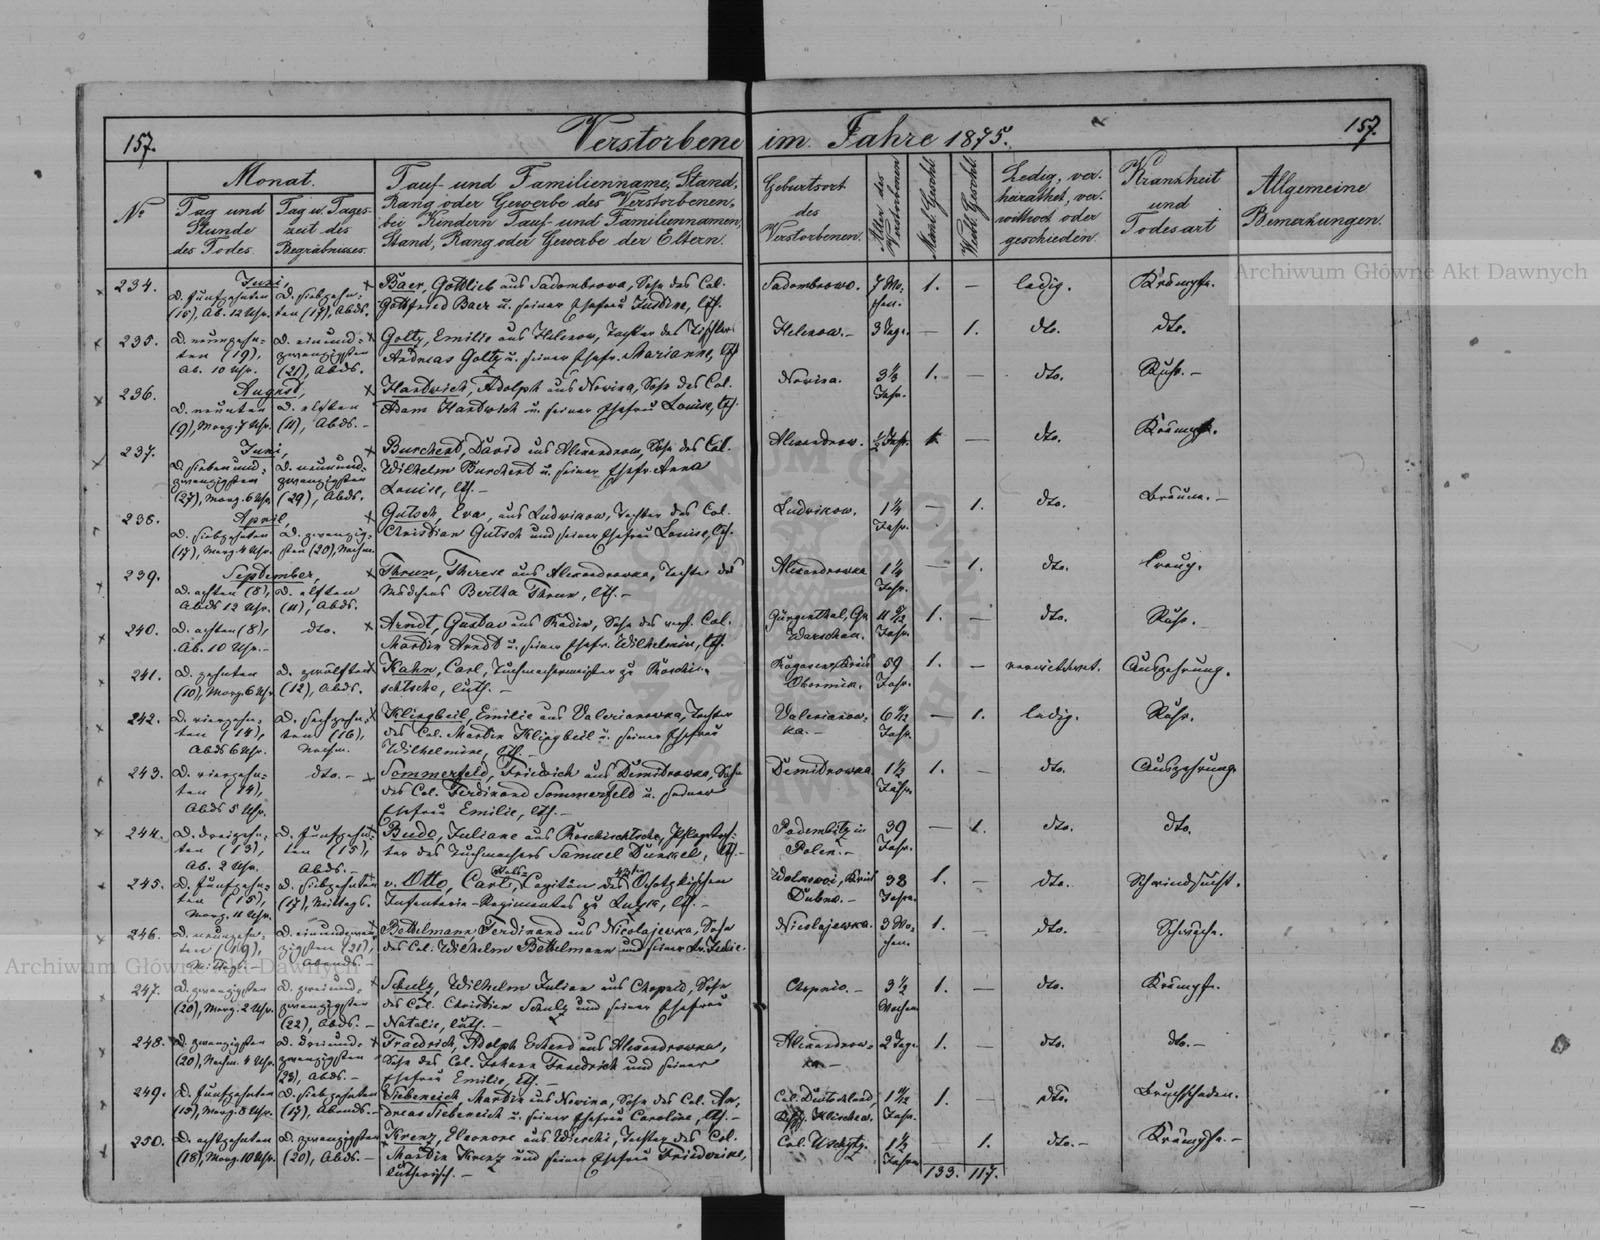 157.
Verstorbene im Jahre 1875.
157.
Nº
Monat.
Tag und Stunde des Todes.
Tag u. Tageszeit des Begräbnisses.
Tauf- und Familienname, Stand,
Rang oder Gewerbe des Verstorbenen,
bei Kindern Tauf- und Familiennamen,
Stand, Rang oder Gewerbe der Eltern.
Geburtsort
des
Verstorbenen.
Alter des Verstorbenen
Männl. Geschl.
Weibl. Geschl.
Ledig, ver-
heirathet, ver-
wittwet oder
geschieden.
Krankheit
und
Todesart
Allgemeine
Bemerkungen.
Archiwum Główne Akt Dawnych
234.
Juni
D. fünfzehnten
(15), Ab. 12 Uhr.
D. siebzehn-
ten (17), Abds.
Baer, Gottlieb aus Sadombrowa, Sohn des Col.
Gottfried Baer u. seiner Ehefrau Justine, lth.
Sadombrowo.
7 Wo-
chen.
1.
—
ledig.
Krämpfe.
235.
D. neunzehn-
ten (19),
Ab. 10 Uhr.
D. einund-
zwanzigsten
(21), Abds.
Goltz, Emilie aus Helenow, Tochter des Tischlers
Andreas Goltz u. seiner Ehefr. Marianne, lth.
Helenow.
3 Tage.
—
1.
dto.
dto.
236.
August,
D. neunten
(9), Morg. 7 Uhr.
D. elften
(11), Abds.
Hardwich, Adolph aus Novina, Sohn des Col.
Adam Hardwich u. seiner Ehefrau Louise, lth.
Novina.
3 1/3
Jahr.
1.
—
dto.
Ruhr.
237.
Juni,
D. siebenund-
zwanzigsten
(27), Morg. 6 Uhr
D. neunund-
zwanzigsten
(29), Abds.
Burchert, David aus Alexandrow, Sohn des Col.
Wilhelm Burchert u. seiner Ehefr. Anna
Louise, lth.
Alexandrow.
1/2 Jahr.
1.
—
dto.
Krämpfe.
238.
April,
D. siebzehnten
(17), Morg. 4 Uhr.
D. zwanzig-
sten (20), Nachm.
Gutsch, Eva, aus Ludwikow, Tochter des Col.
Christian Gutsch und seiner Ehefrau Louise, lth.
Ludwikow.
1 1/4
Jahr.
—
1.
dto.
Bräune.
239.
September,
D. achten (8),
Abds 12 Uhr.
D. elften
(11), Abds.
Thrun, Therese aus Alexandrowka, Tochter des
Mädchens Bertha Thrun, lth.
Alexandrowka
1 1/4
Jahr.
—
1.
dto.
240.
D. achten (8),
Ab. 10 Uhr.
dto.
Arndt, Gustav aus Radiw, Sohn des verst. Col.
Martin Arndt u. seiner Ehefr. Wilhelmine, lth.
Warschau.
Jahr.
1.
—
dto.
Ruhr.
241.
D. zehnten
(10), Morg. 6 Uhr
D. zwölften
(12), Abds.
Kahn, Carl, Tuchmachermeister zu Roschi-
schtsche, luth.
Obornick.
59
Jahr.
1.
—
verwittwet.
Auszehrung.
242.
D. vierzehn-
ten (14),
Abds 6 Uhr.
D. sechzehn-
ten (16),
Nachm.
Klingbeil, Emilie aus Valerianowka, Tochter
des Col. Martin Klingbeil u. seiner Ehefrau
Wilhelmine, lth.
Valerianow-
ka.
Jahr.
—
1.
ledig.
Ruhr.
243.
D. vierzehn-
ten (14),
Abds 5 Uhr.
dto.
Sommerfeld, Friedrich aus Dimitrowka, Sohn
des Col. Ferdinand Sommerfeld u. seiner
Ehefrau Emilie, lth.
Demitrowka.
1 1/2
Jahr.
1.
—
dto.
Auszehrung.
244.
D. dreizehn-
ten (13),
Ab. 2 Uhr.
D. fünfzehn-
ten (15),
Abds.
Budo, Juliane aus Roschischtsche, Pflegetoch-
ter des Tuchmachers Samuel Dunkel, lth.
Polen.
39
Jahr.
—
1.
dto.
dto.
245.
D. fünfzehn-
ten (15),
Morg. 11 Uhr.
D. siebzehnten
(17), Mittags.
v. Otto, Carl, Capitän des Ochotzkischen
Infanterie-Regimentes zu Luzk, lth.
Dubno.
38
Jahre.
1.
—
dto.
Schwindsucht.
246.
D. neunzehn-
ten (19),
Mittags.
D. einundzwan-
zigsten (21),
Abends.
Bethelmann, Ferdinand aus Nicolajewka, Sohn
des Col. Wilhelm Bethelmann und seiner
Nicolajewka.
3 Wo-
chen.
1.
—
dto.
Schwäche.
Archiwum Główne Akt Dawnych
247.
D. zwanzigsten
(20), Morg. 2 Uhr.
D. zweiund-
zwanzigsten
(22), Abds.
Schulz, Wilhelm Julian aus Chopnio, Sohn
des Col. Christian Schulz und seiner Ehefrau
Natalie, luth.
Chopnio.
3 1/2
Wochen
1.
—
dto.
Krämpfe.
248.
D. zwanzigsten
(20), Nachm. 4 Uhr.
D. dreiund-
zwanzigsten
(23), Abds.
Friedrich, Adolph Eduard aus Alexandrowka,
Sohn des Col. Johann Friedrich und seiner
Ehefrau Emilie, lth.
Alexandrow-
ka
2 Tage
1.
—
dto.
dto.
249.
D. fünfzehnten
(15), Morg. 8 Uhr.
D. siebzehnten
(17), Abends.
Siebeneich, Martin aus Novina, Sohn des Col. An-
dreas Siebeneich u. seiner Ehefrau Caroline, lth.
Jahr.
1.
—
dto.
Bruchschaden.
250.
D. achtzehnten
(18), Morg. 10 Uhr.
D. zwanzigsten
(20), Abds.
Krenz, Eleonore aus Wierchi, Tochter des Col.
Martin Krenz und seiner Ehefrau Friedericke,
lutherisch.
1 1/2
Jahre
—
1.
dto.
Krämpfe.
133. 117.